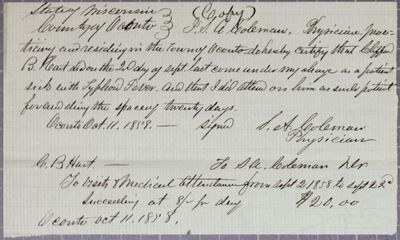 State of Wisconsin
County of Oconto
(Copy)
I. S. A. Coleman, Physician, prac-
ticing and residing in the town of Oconto do hereby certify that Clifford
B. Hart did on the 2d day of Sept. last come under my charge as a patient
sick with Typhoid Fever. And that I did attend on him as such patient
for and during the space of twenty days.
Oconto Oct. 11. 1858. — signed S. A. Coleman
Physician
C. B Hart — To S A. Coleman Dr
To visits & Medical Attendance from Sept 2 1858 to Sept 22d
Succeeding at 8/- pr day $20,00
Oconto Oct 11. 1858.